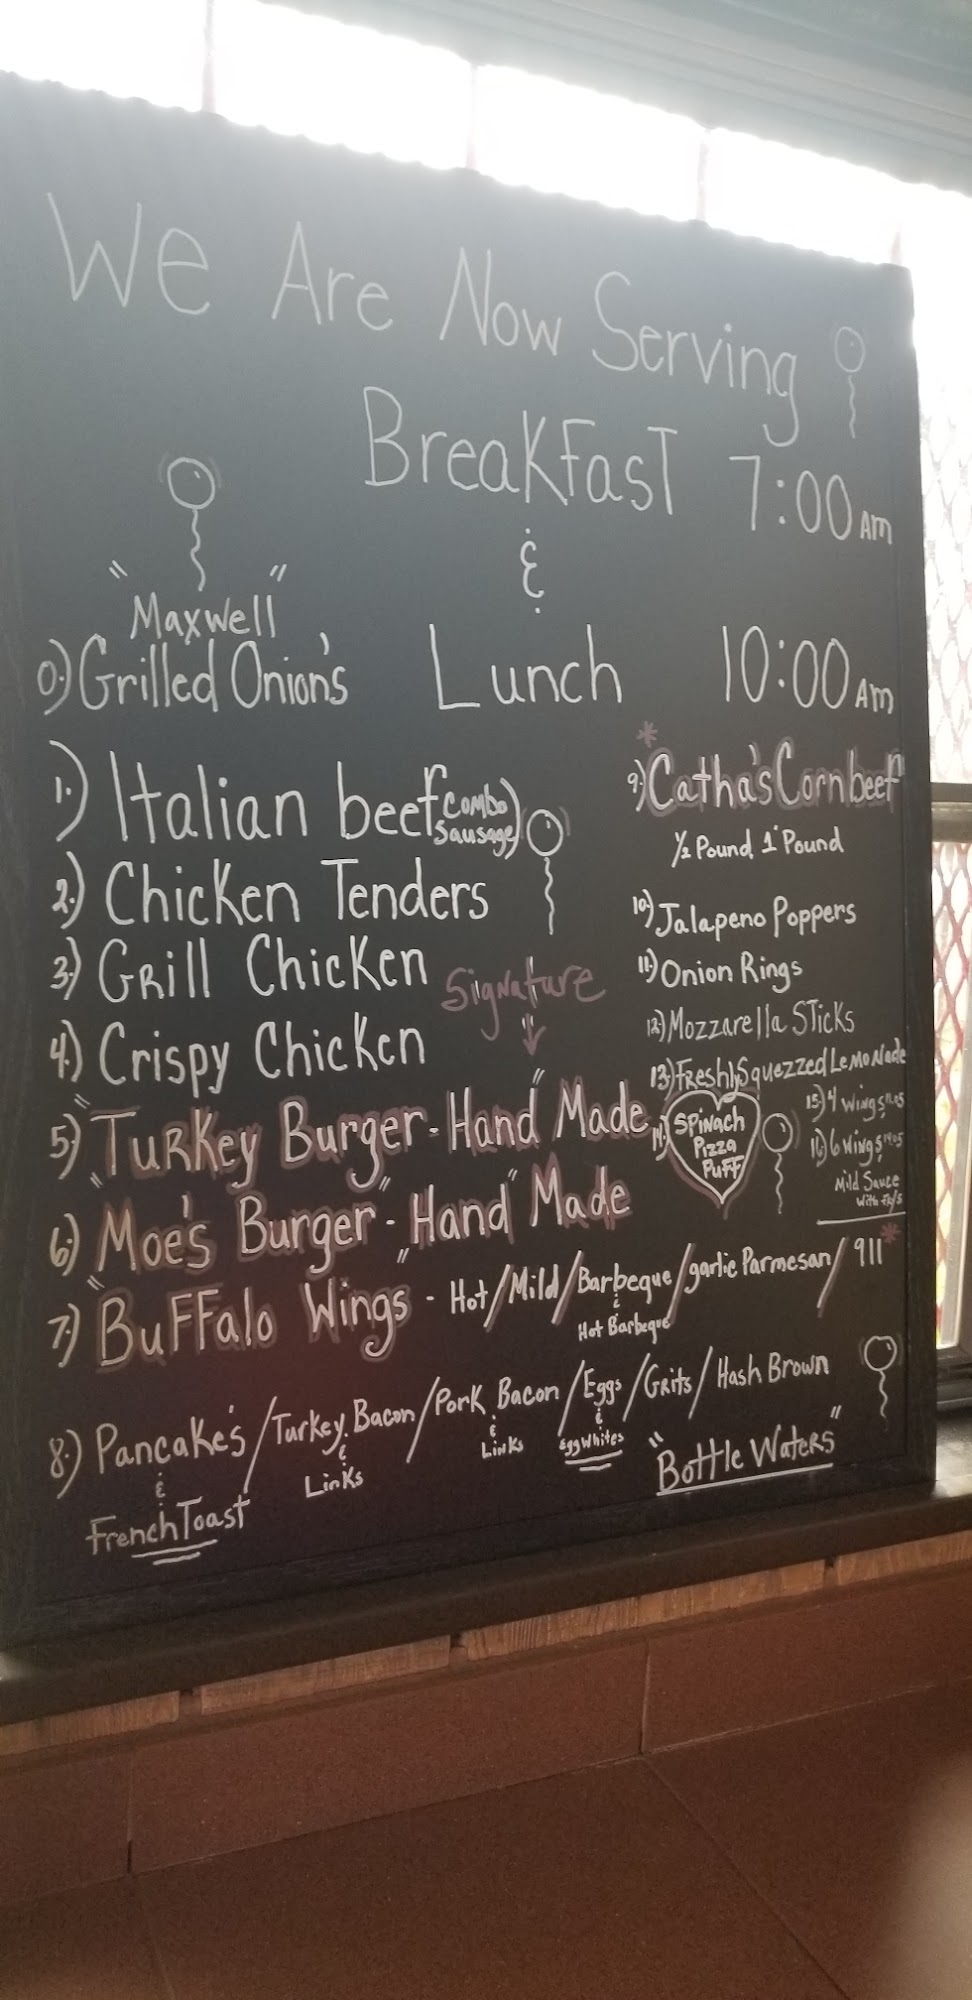 We Are Now Serving
Breakfast 7:00 AM
&
Lunch 10:00 AM
"Maxwell"
0.) Grilled Onion's
1.) Italian beef (Combo Sausage)
2.) Chicken Tenders
3.) Grill Chicken
4.) Crispy Chicken
Signature
5.) "Turkey Burger - Hand" Made
6.) "Moe's Burger" - "Hand" Made
7.) "Buffalo Wings - Hot / Mild / Barbeque / garlic Parmesan / 911 *
& Hot Barbeque
8.) Pancake's / Turkey Bacon / Pork Bacon / Eggs / Grits / Hash Brown
& French Toast
& Links
& Links
& Egg Whites
"Bottle Waters"
*
9.) Catha's Cornbeef
1/2 Pound 1 Pound
10.) Jalapeno Poppers
11.) Onion Rings
12.) Mozzarella Sticks
13.) Freshly Squezzed Lemonade
14.) Spinach
Pizza
Puff
15.) 4 Wings
16.) 6 Wings
Mild Sauce
With